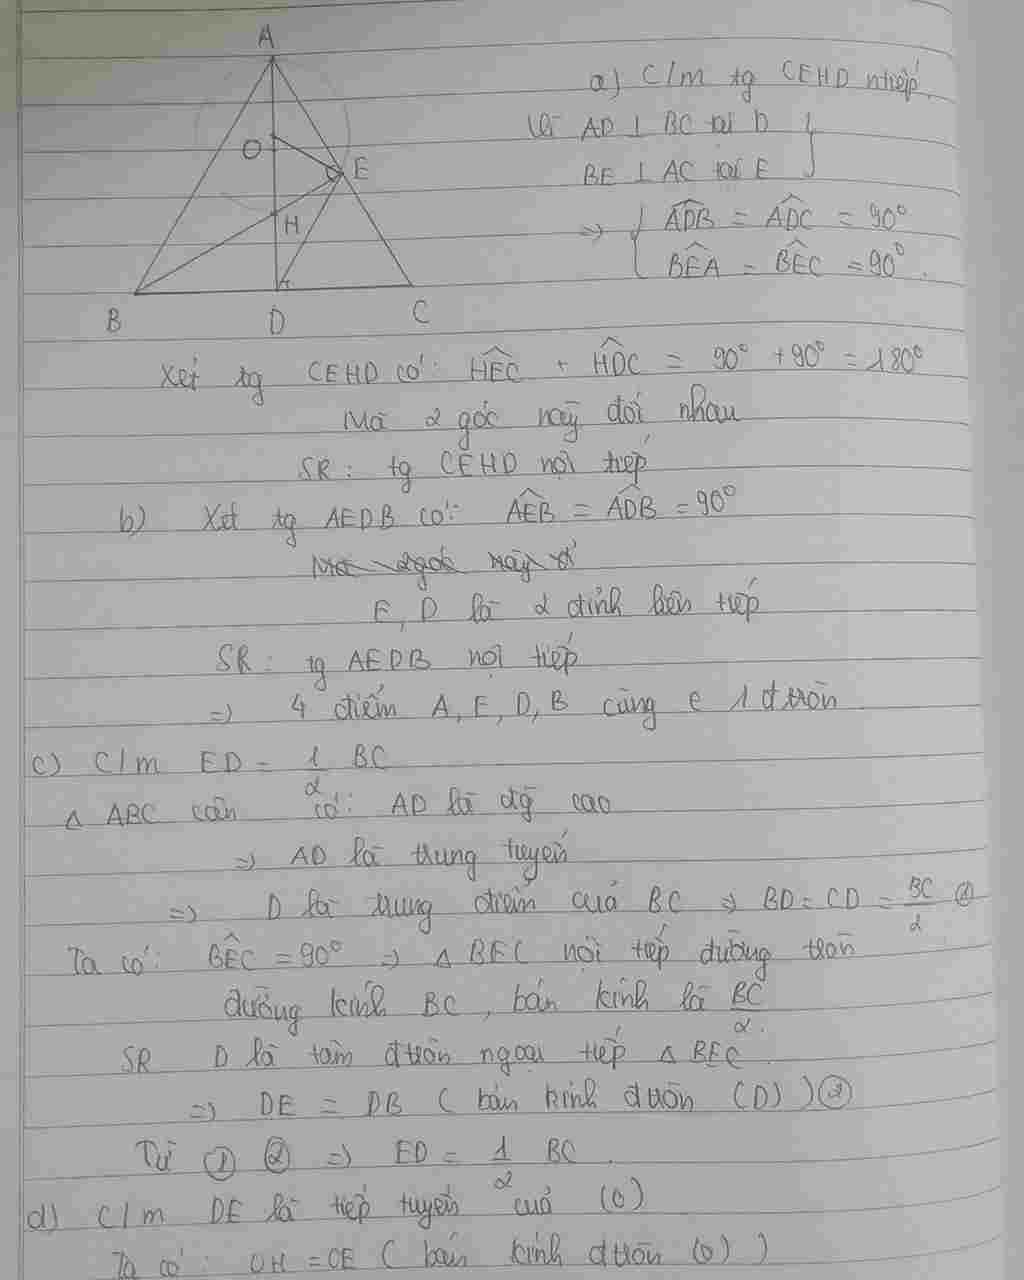 A
O
E
H
B
D
C
a) C/m tg CEHD ntiếp.
Vì AD ⊥ BC tại D
BE ⊥ AC tại E
=> { ADB = ADC = 90°
BEA = BEC = 90°.
Xét tg CEHD có: HEC + HDC = 90° + 90° = 180°
Mà 2 góc này đối nhau
SR: tg CEHD nội tiếp
b) Xét tg AEDB có: AEB = ADB = 90°
Mà 2 góc này ở
E, D là 2 đỉnh liên tiếp
SR: tg AEDB nội tiếp
=> 4 điểm A, E, D, B cùng e 1 đ tròn
c) C/m ED = 1/2 BC
Δ ABC cân có: AD là đg cao
=> AD là trung tuyến
=> D là trung điểm của BC => BD = CD = BC/2 ①
Ta có: BEC = 90° => Δ BEC nội tiếp đường tròn
đường kính BC, bán kính là BC/2.
SR D là tâm đtròn ngoại tiếp Δ BEC
=> DE = DB ( bán kính đtròn (D) ) ②
Từ ① ② => ED = 1/2 BC.
d) C/m DE là tiếp tuyến của (O)
Ta có: OH = OE ( bán kính đtròn (O) )